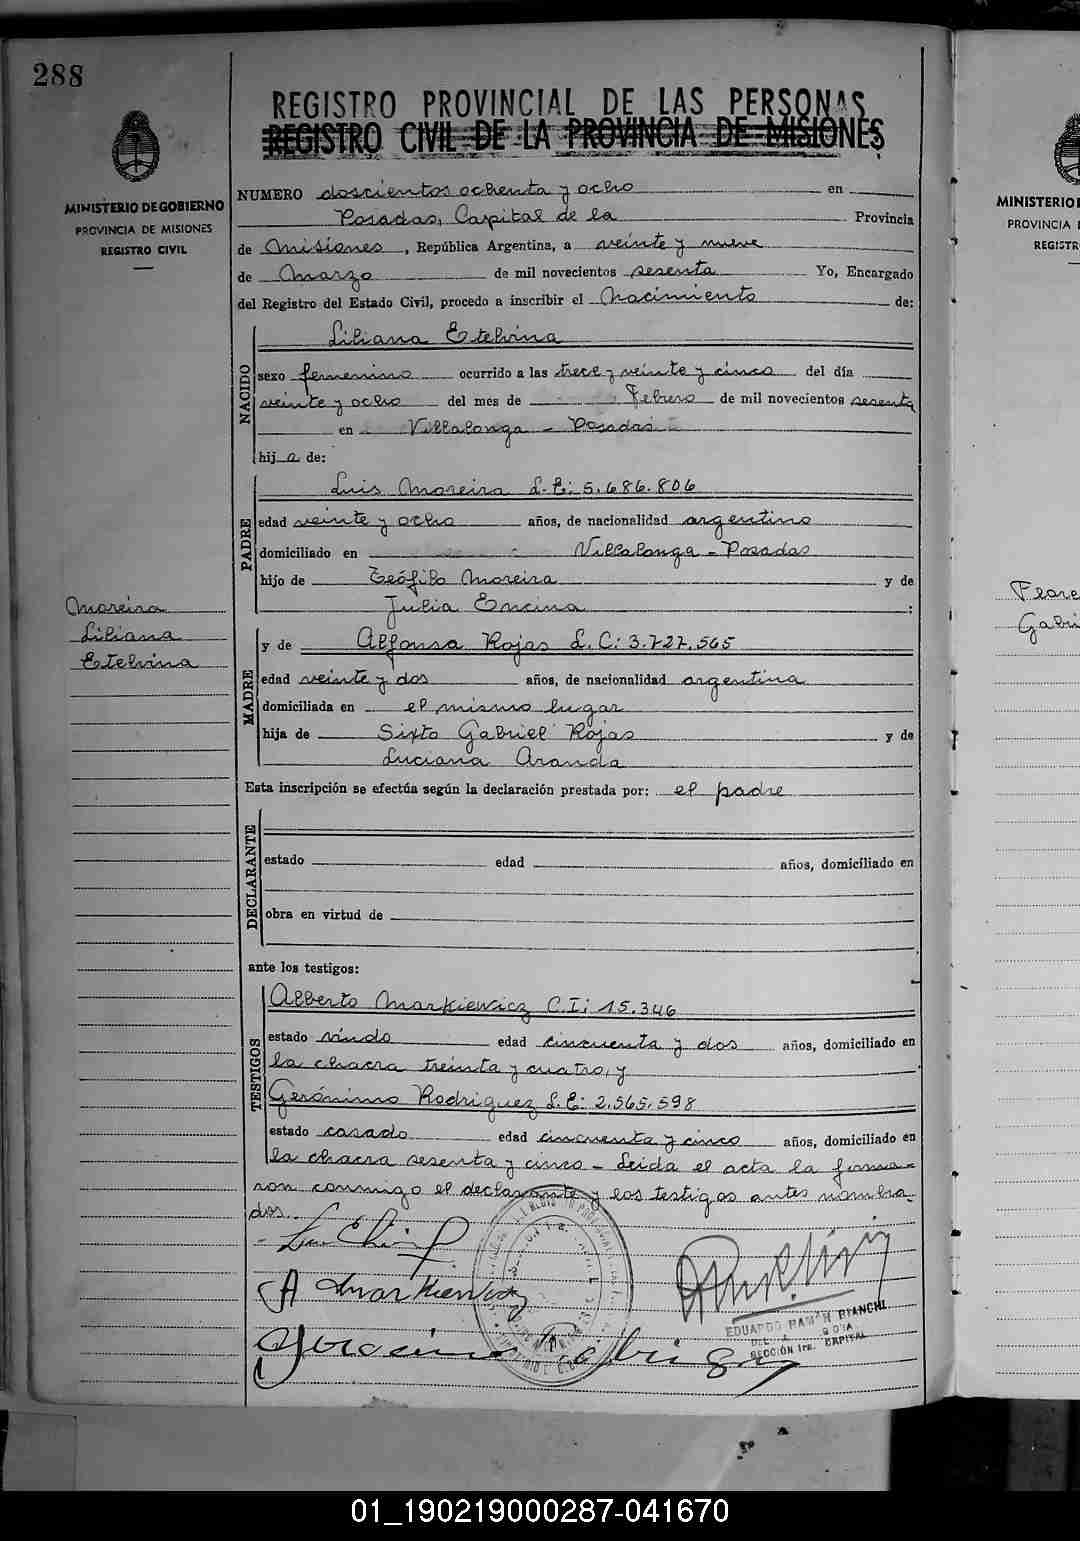 288
REGISTRO PROVINCIAL DE LAS PERSONAS
REGISTRO CIVIL DE LA PROVINCIA DE MISIONES
MINISTERIO DE GOBIERNO
PROVINCIA DE MISIONES
REGISTRO CIVIL
NUMERO doscientos ochenta y ocho en
Posadas, Capital de la Provincia
de Misiones, República Argentina, a veinte y nueve
de Marzo de mil novecientos sesenta Yo, Encargado
del Registro del Estado Civil, procedo a inscribir el Nacimiento de:
NACIDO
Liliana Etelvina
sexo femenino ocurrido a las trece y veinte y cinco del día
veinte y ocho del mes de Febrero de mil novecientos sesenta
en Villalonga - Posadas
hij a de:
PADRE
Luis Moreira L.E: 5.686.806
edad veinte y ocho años, de nacionalidad argentino
domiciliado en Villalonga - Posadas
hijo de Teófilo Moreira y de
Julia Encina :
Moreira
Liliana
Etelvina
MADRE
y de Alfonsa Rojas L.C: 3.727.565
edad veinte y dos años, de nacionalidad argentina
domiciliada en el mismo lugar
hija de Sixto Gabriel Rojas y de
Luciana Aranda
Esta inscripción se efectúa según la declaración prestada por: el padre
DECLARANTE
estado edad años, domiciliado en
obra en virtud de
ante los testigos:
TESTIGOS
Alberto Markiewicz C.I: 15.346
estado viudo edad cincuenta y dos años, domiciliado en
la chacra treinta y cuatro, y
Gerónimo Rodriguez L.E: 2.565.598
estado casado edad cincuenta y cinco años, domiciliado en
la chacra sesenta y cinco - Leida el acta la firma-
ron conmigo el declarante y los testigos antes nombra-
dos.
A Markiewicz
EDUARDO RAMON BIANCHI
SECCIÓN 1ra. CAPITAL
MINISTERIO
PROVINCIA
REGISTR
Flore
Gabri
01_190219000287-041670